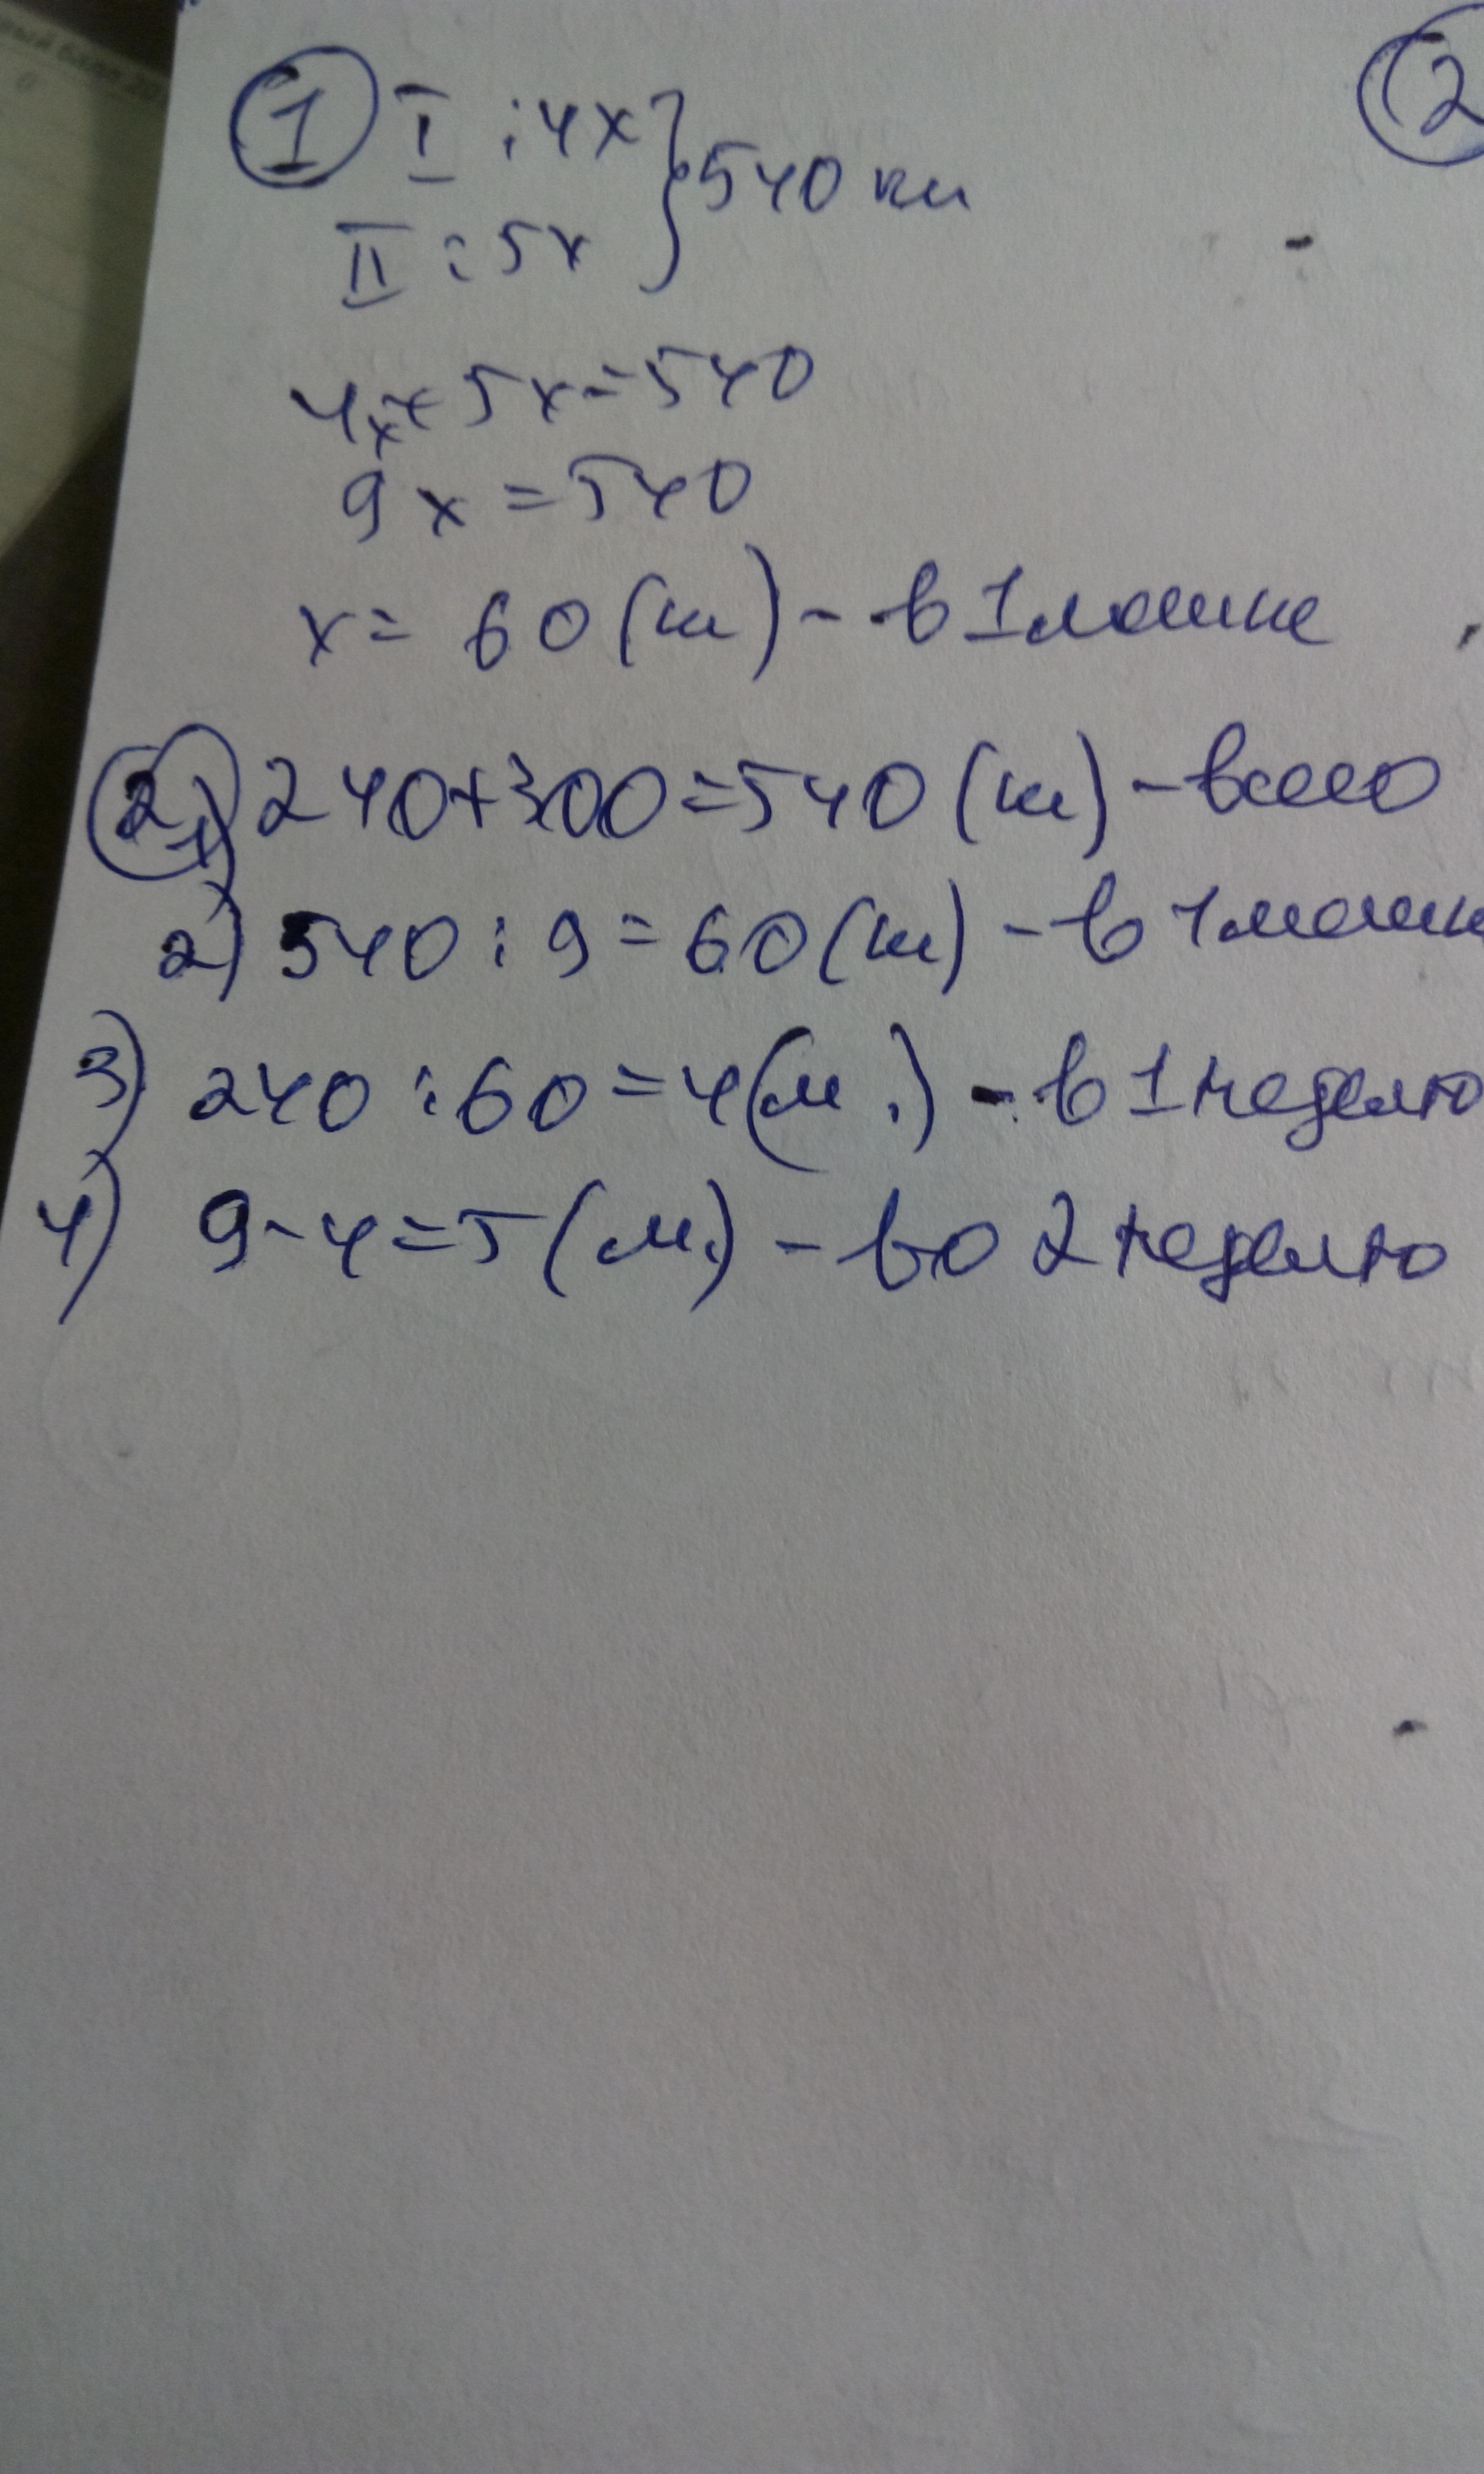 ① I : 4x } 540 кг
II : 5x
4x + 5x = 540
9x = 540
x = 60 (кг) - в 1 мешке
② 1) 240 + 300 = 540 (кг) - всего
2) 540 : 9 = 60 (кг) - в 1 мешк
3) 240 : 60 = 4 (м.) - в 1 неделю
4) 9 - 4 = 5 (м.) - во 2 неделю
②